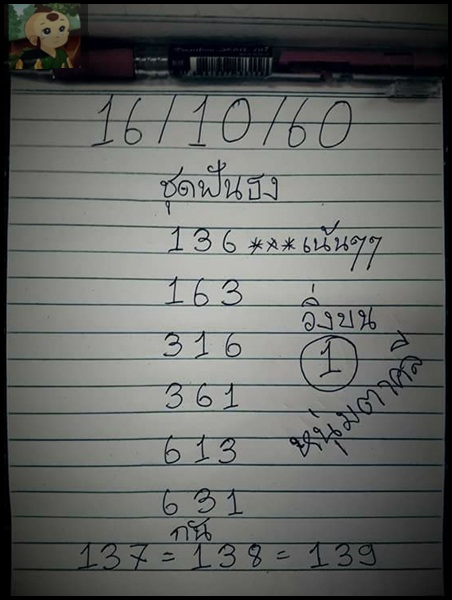 16/10/60
ชุดฟันธง
136 *** เน้นๆๆ
163
วิ่งบน
316
1
361
หนุ่มตาคลี
613
631
กัน
137 = 138 = 139